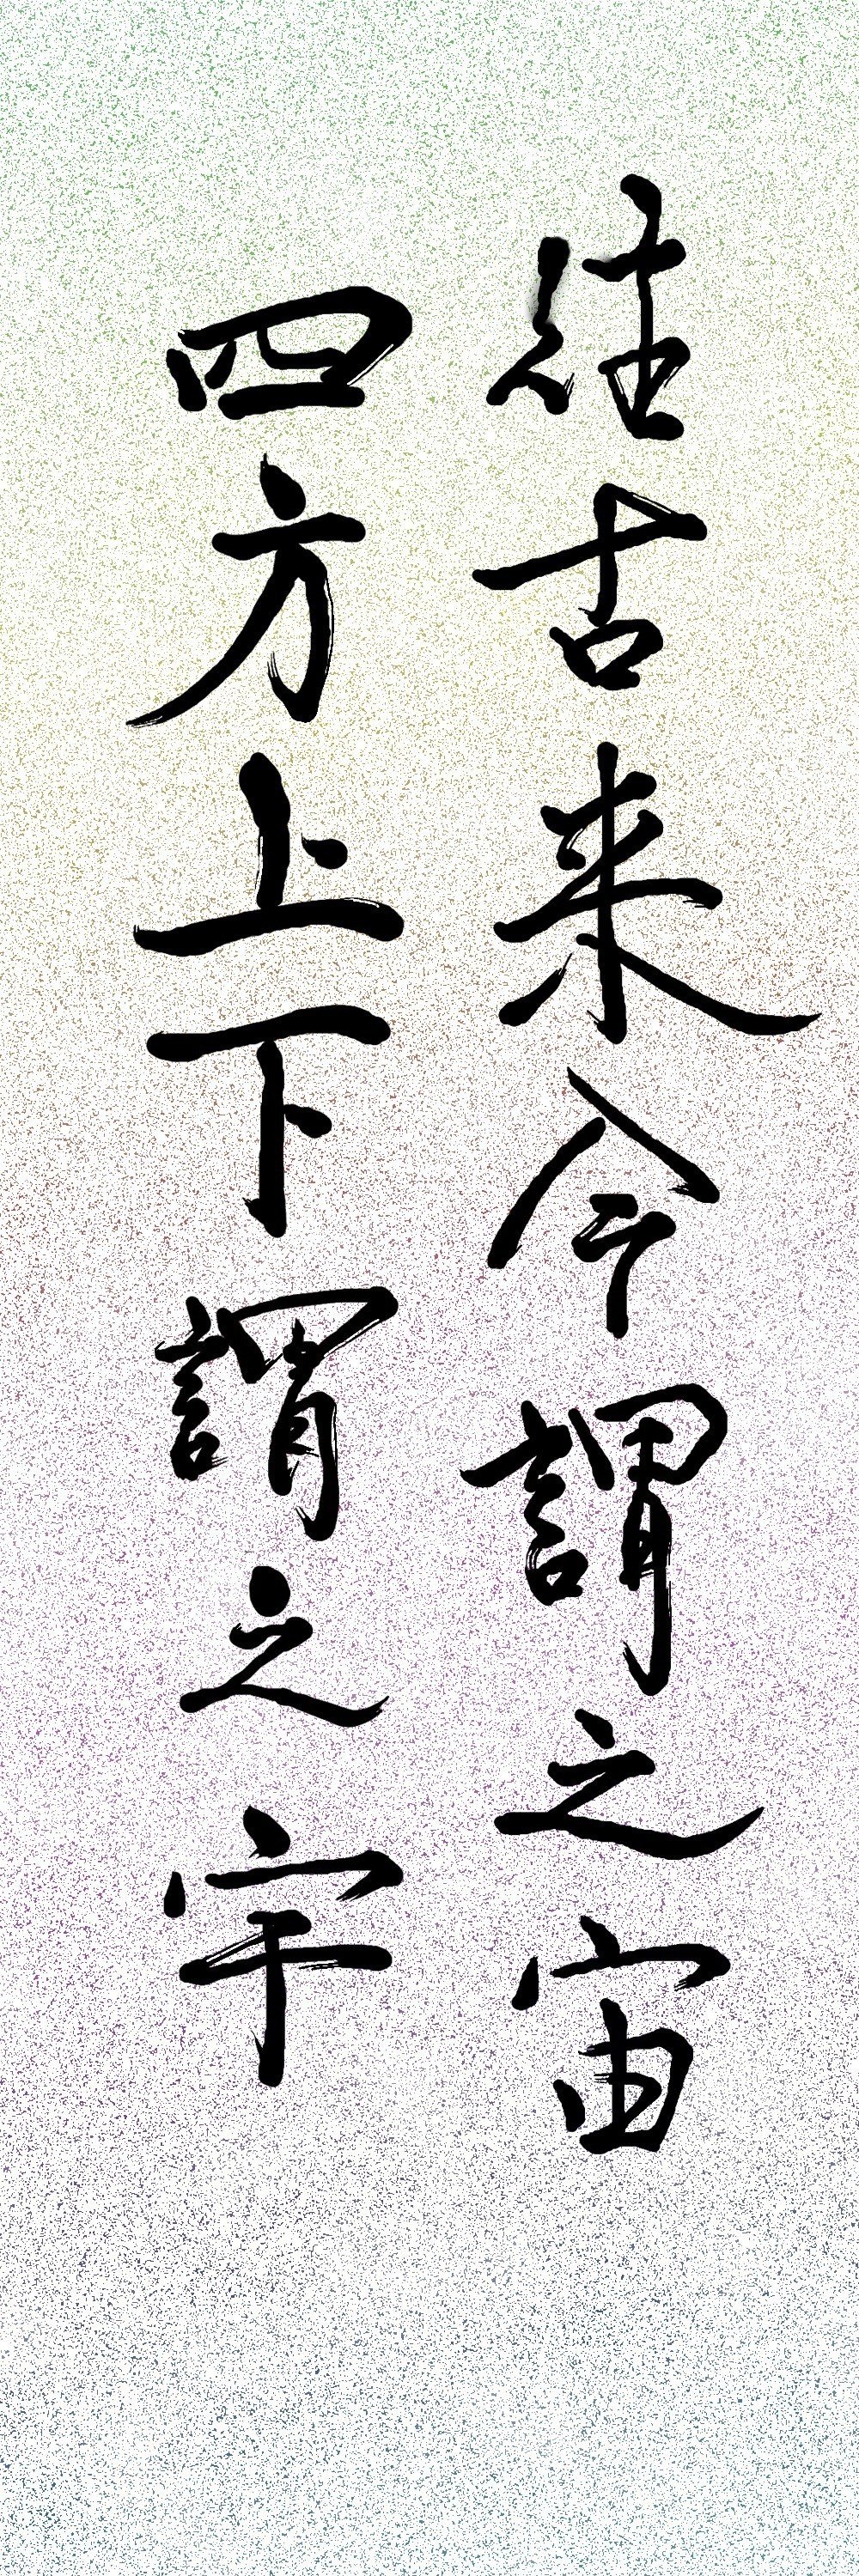 往古来今謂之宙
四方上下謂之宇